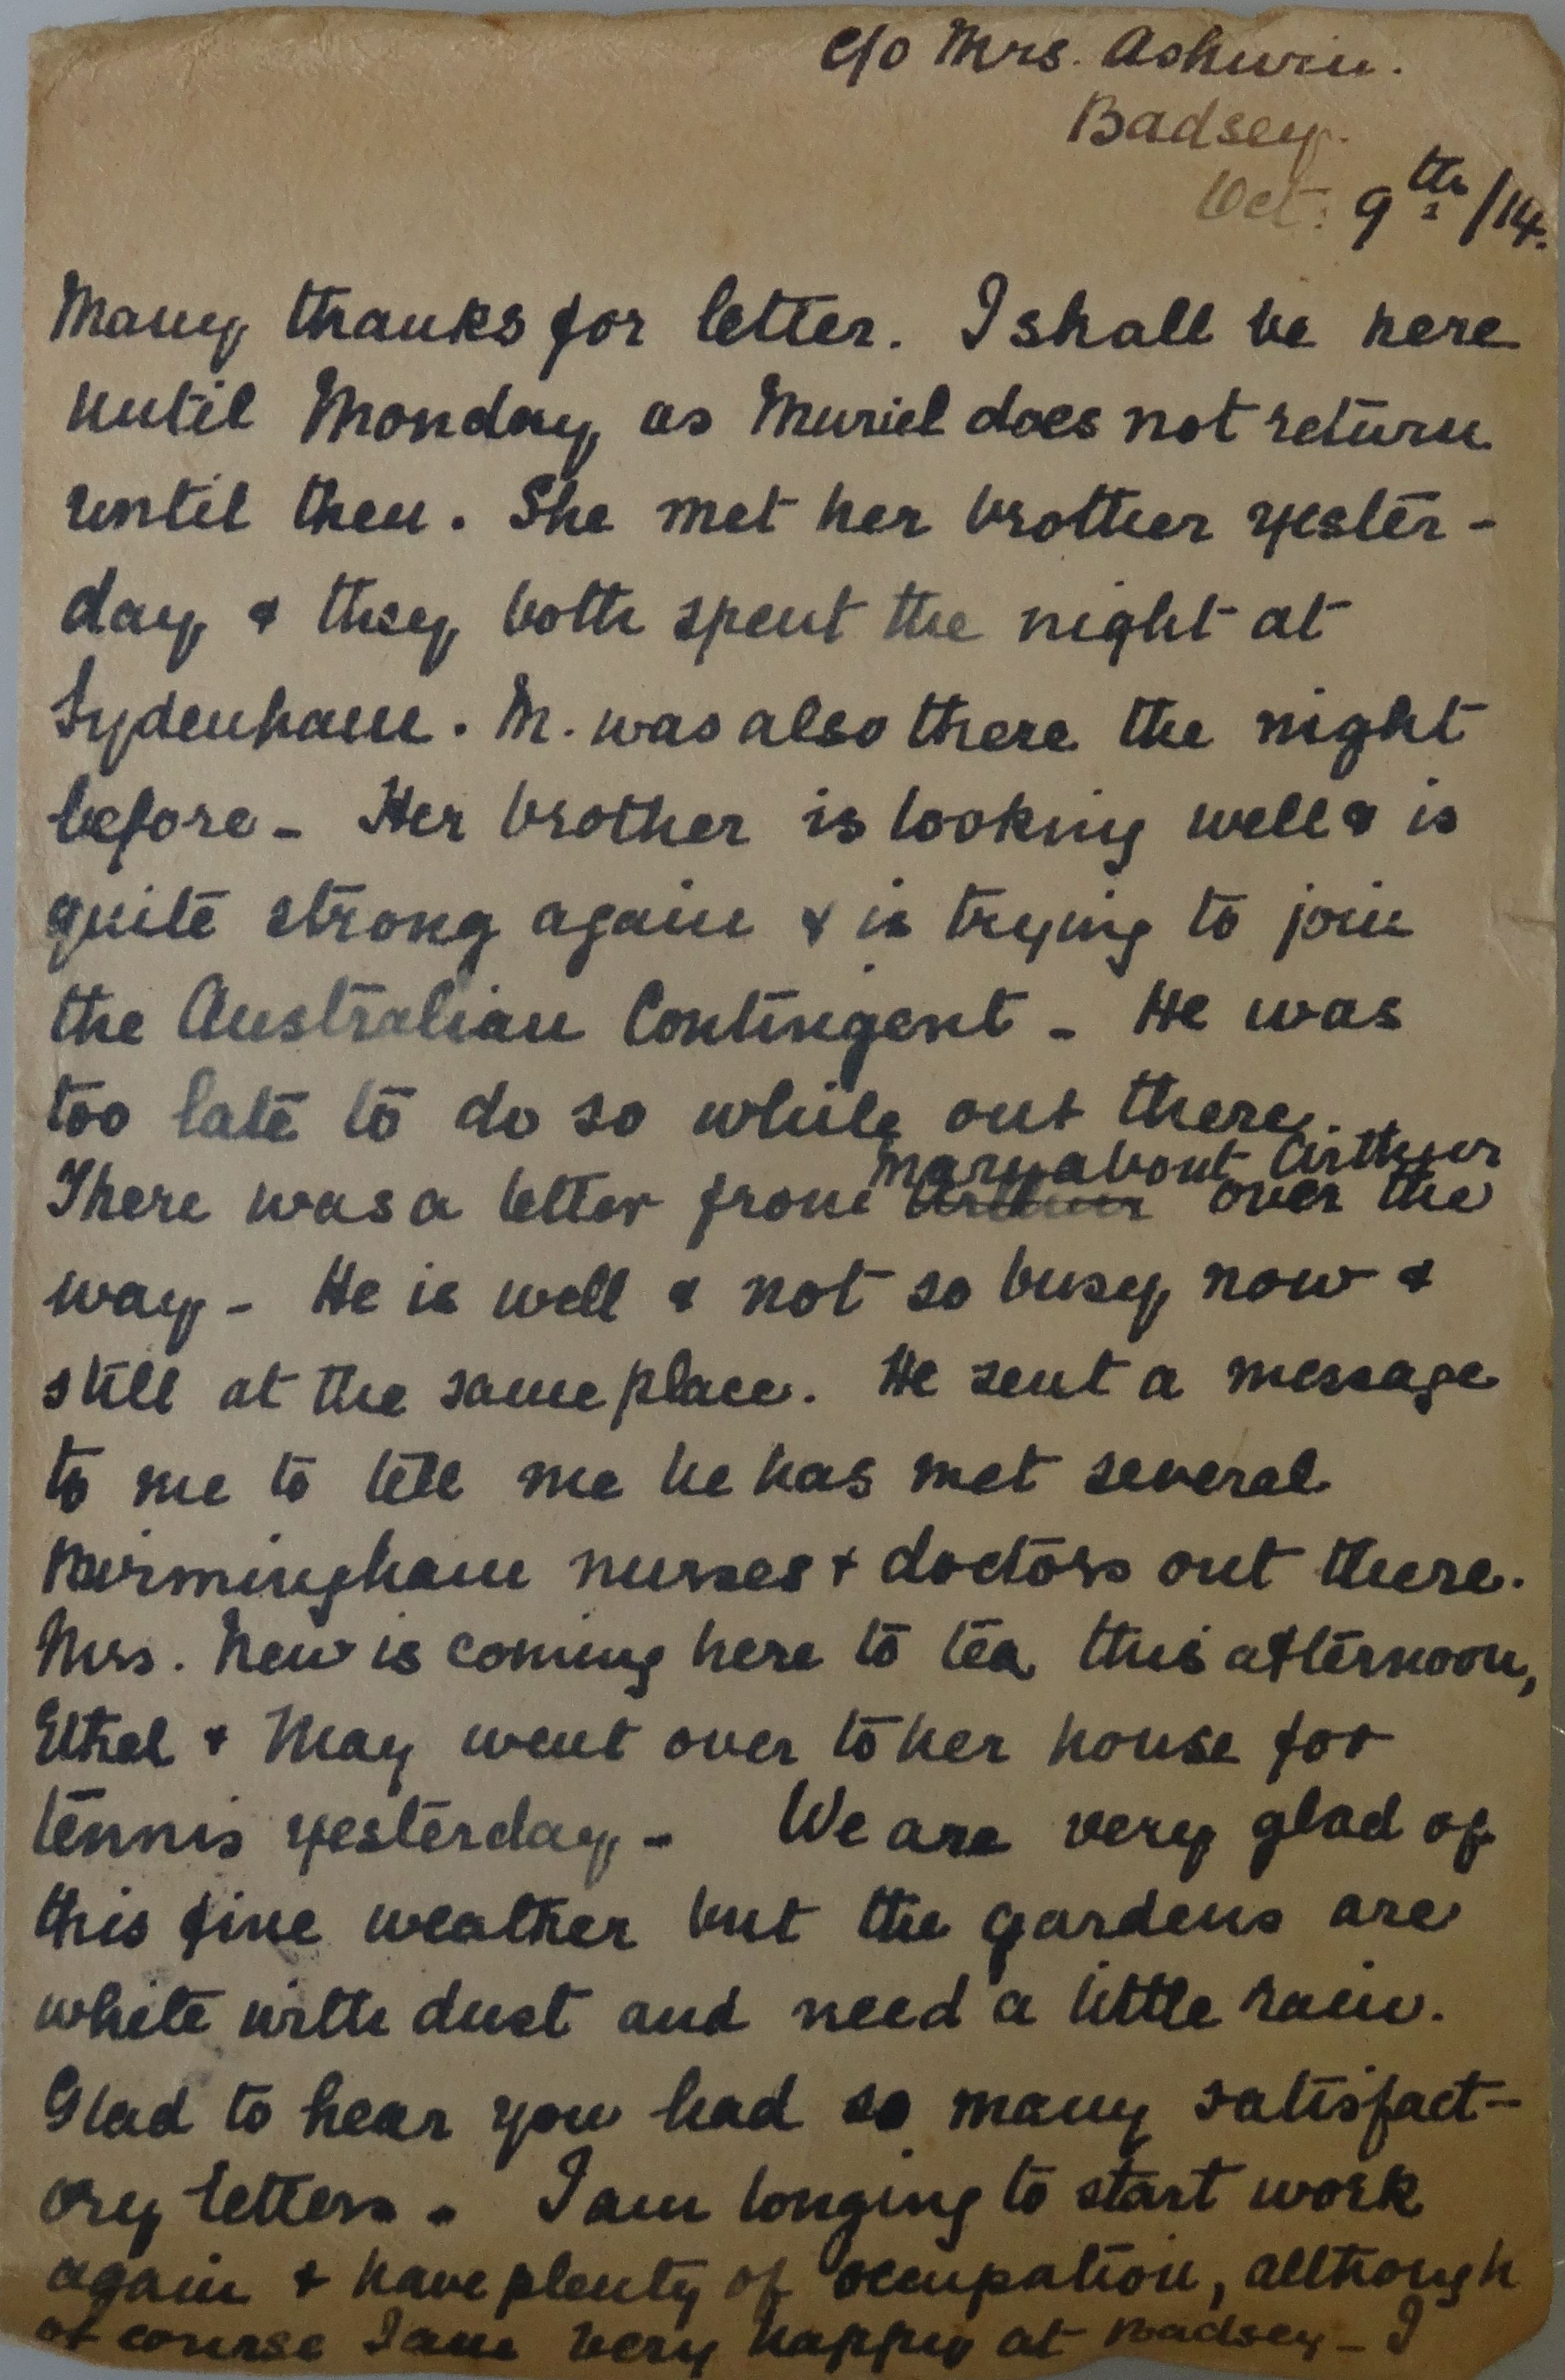 c/o Mrs. Ashwin.
Badsey.
Oct: 9th/14.
Many thanks for letter. I shall be here
until Monday, as Muriel does not return
until then. She met her brother yester-
day & they both spent the night at
Sydenham. M. was also there the night
before - Her brother is looking well & is
quite strong again & is trying to join
the Australian Contingent - He was
too late to do so while out there.
Mary about Arthur
There was a letter from Arthur over the
way - He is well & not so busy now &
still at the same place. He sent a message
to me to tell me he has met several
Birmingham nurses & doctors out there.
Mrs. New is coming here to tea this afternoon,
Ethel & May went over to her house for
tennis yesterday - We are very glad of
this fine weather but the gardens are
white with dust and need a little rain.
Glad to hear you had so many satisfact-
ory letters. I am longing to start work
again & have plenty of occupation, allthough
of course I am very happy at Badsey - I